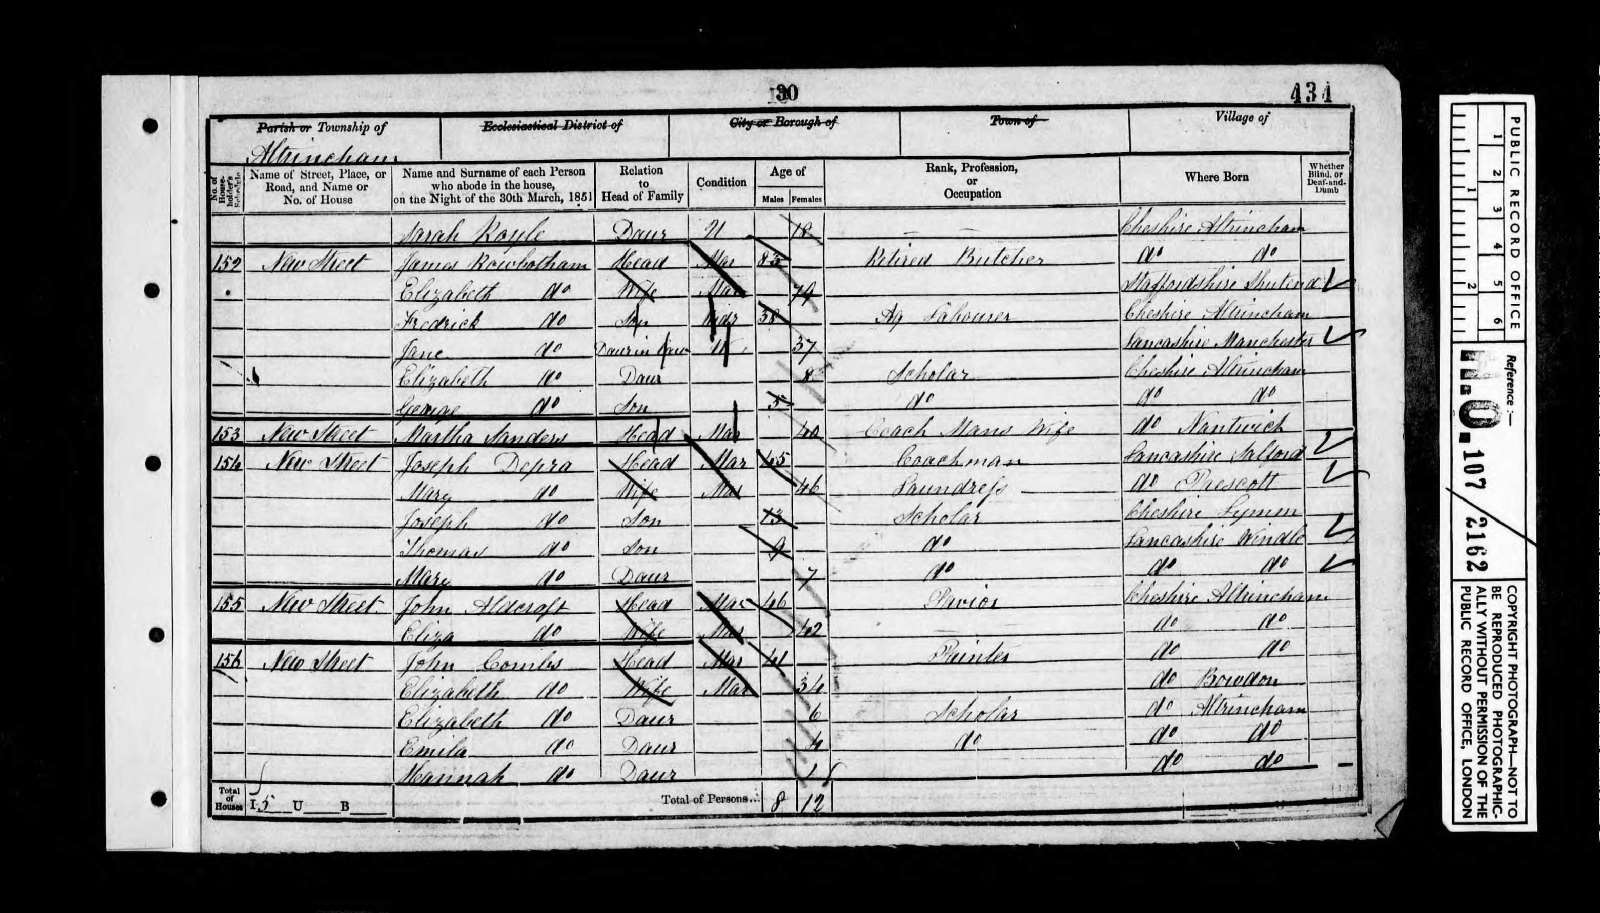 30
434
Parish or Township of
Ecclesiastical District of
City or Borough of
Town of
Village of
Altrincham
No. of House-holder's Schedule
Name of Street, Place, or Road, and Name or No. of House
Name and Surname of each Person who abode in the house, on the Night of the 30th March, 1851
Relation to Head of Family
Condition
Age of
Males Females
Rank, Profession, or Occupation
Where Born
Whether Blind, or Deaf-and-Dumb
Sarah Royle Daur U 18 Cheshire Altrincham
152 New Street James Rowbotham Head Mar 83 Retired Butcher do do
Elizabeth do Wife Mar 79 Staffordshire
Fredrick do Son 38 Ag Labourer Cheshire Altrincham
Jane do Daur in Law 37 Lancashire Manchester
Elizabeth do Daur 8 Scholar Cheshire Altrincham
George do Son 5 do do do
153 New Street Martha Sanders Head Mar 40 Coach Mans Wife do Nantwich
154 New Street Joseph Depra Head Mar 45 Coachman Lancashire Salford
Mary do Wife Mar 46 Laundress do Prescott
Joseph do Son 13 Scholar Cheshire Lymm
Thomas do Son 9 do Lancashire Windle
Mary do Daur 7 do do do
155 New Street John Aldcroft Head Mar 46 Pavior Cheshire Altrincham
Eliza do Wife Mar 42 do do
156 New Street John Combs Head Mar 41 Painter do do
Elizabeth do Wife Mar 34 do Bowdon
Elizabeth do Daur 6 Scholar do Altrincham
Emila do Daur 4 do do do
Hannah do Daur 1 do do
Total of Houses I 5 U B Total of Persons... 8 12
PUBLIC RECORD OFFICE
1 2 3 4 5 6
1 2
Reference:—
H.O. 107 / 2162
COPYRIGHT PHOTOGRAPH—NOT TO
BE REPRODUCED PHOTOGRAPHIC-
ALLY WITHOUT PERMISSION OF THE
PUBLIC RECORD OFFICE, LONDON